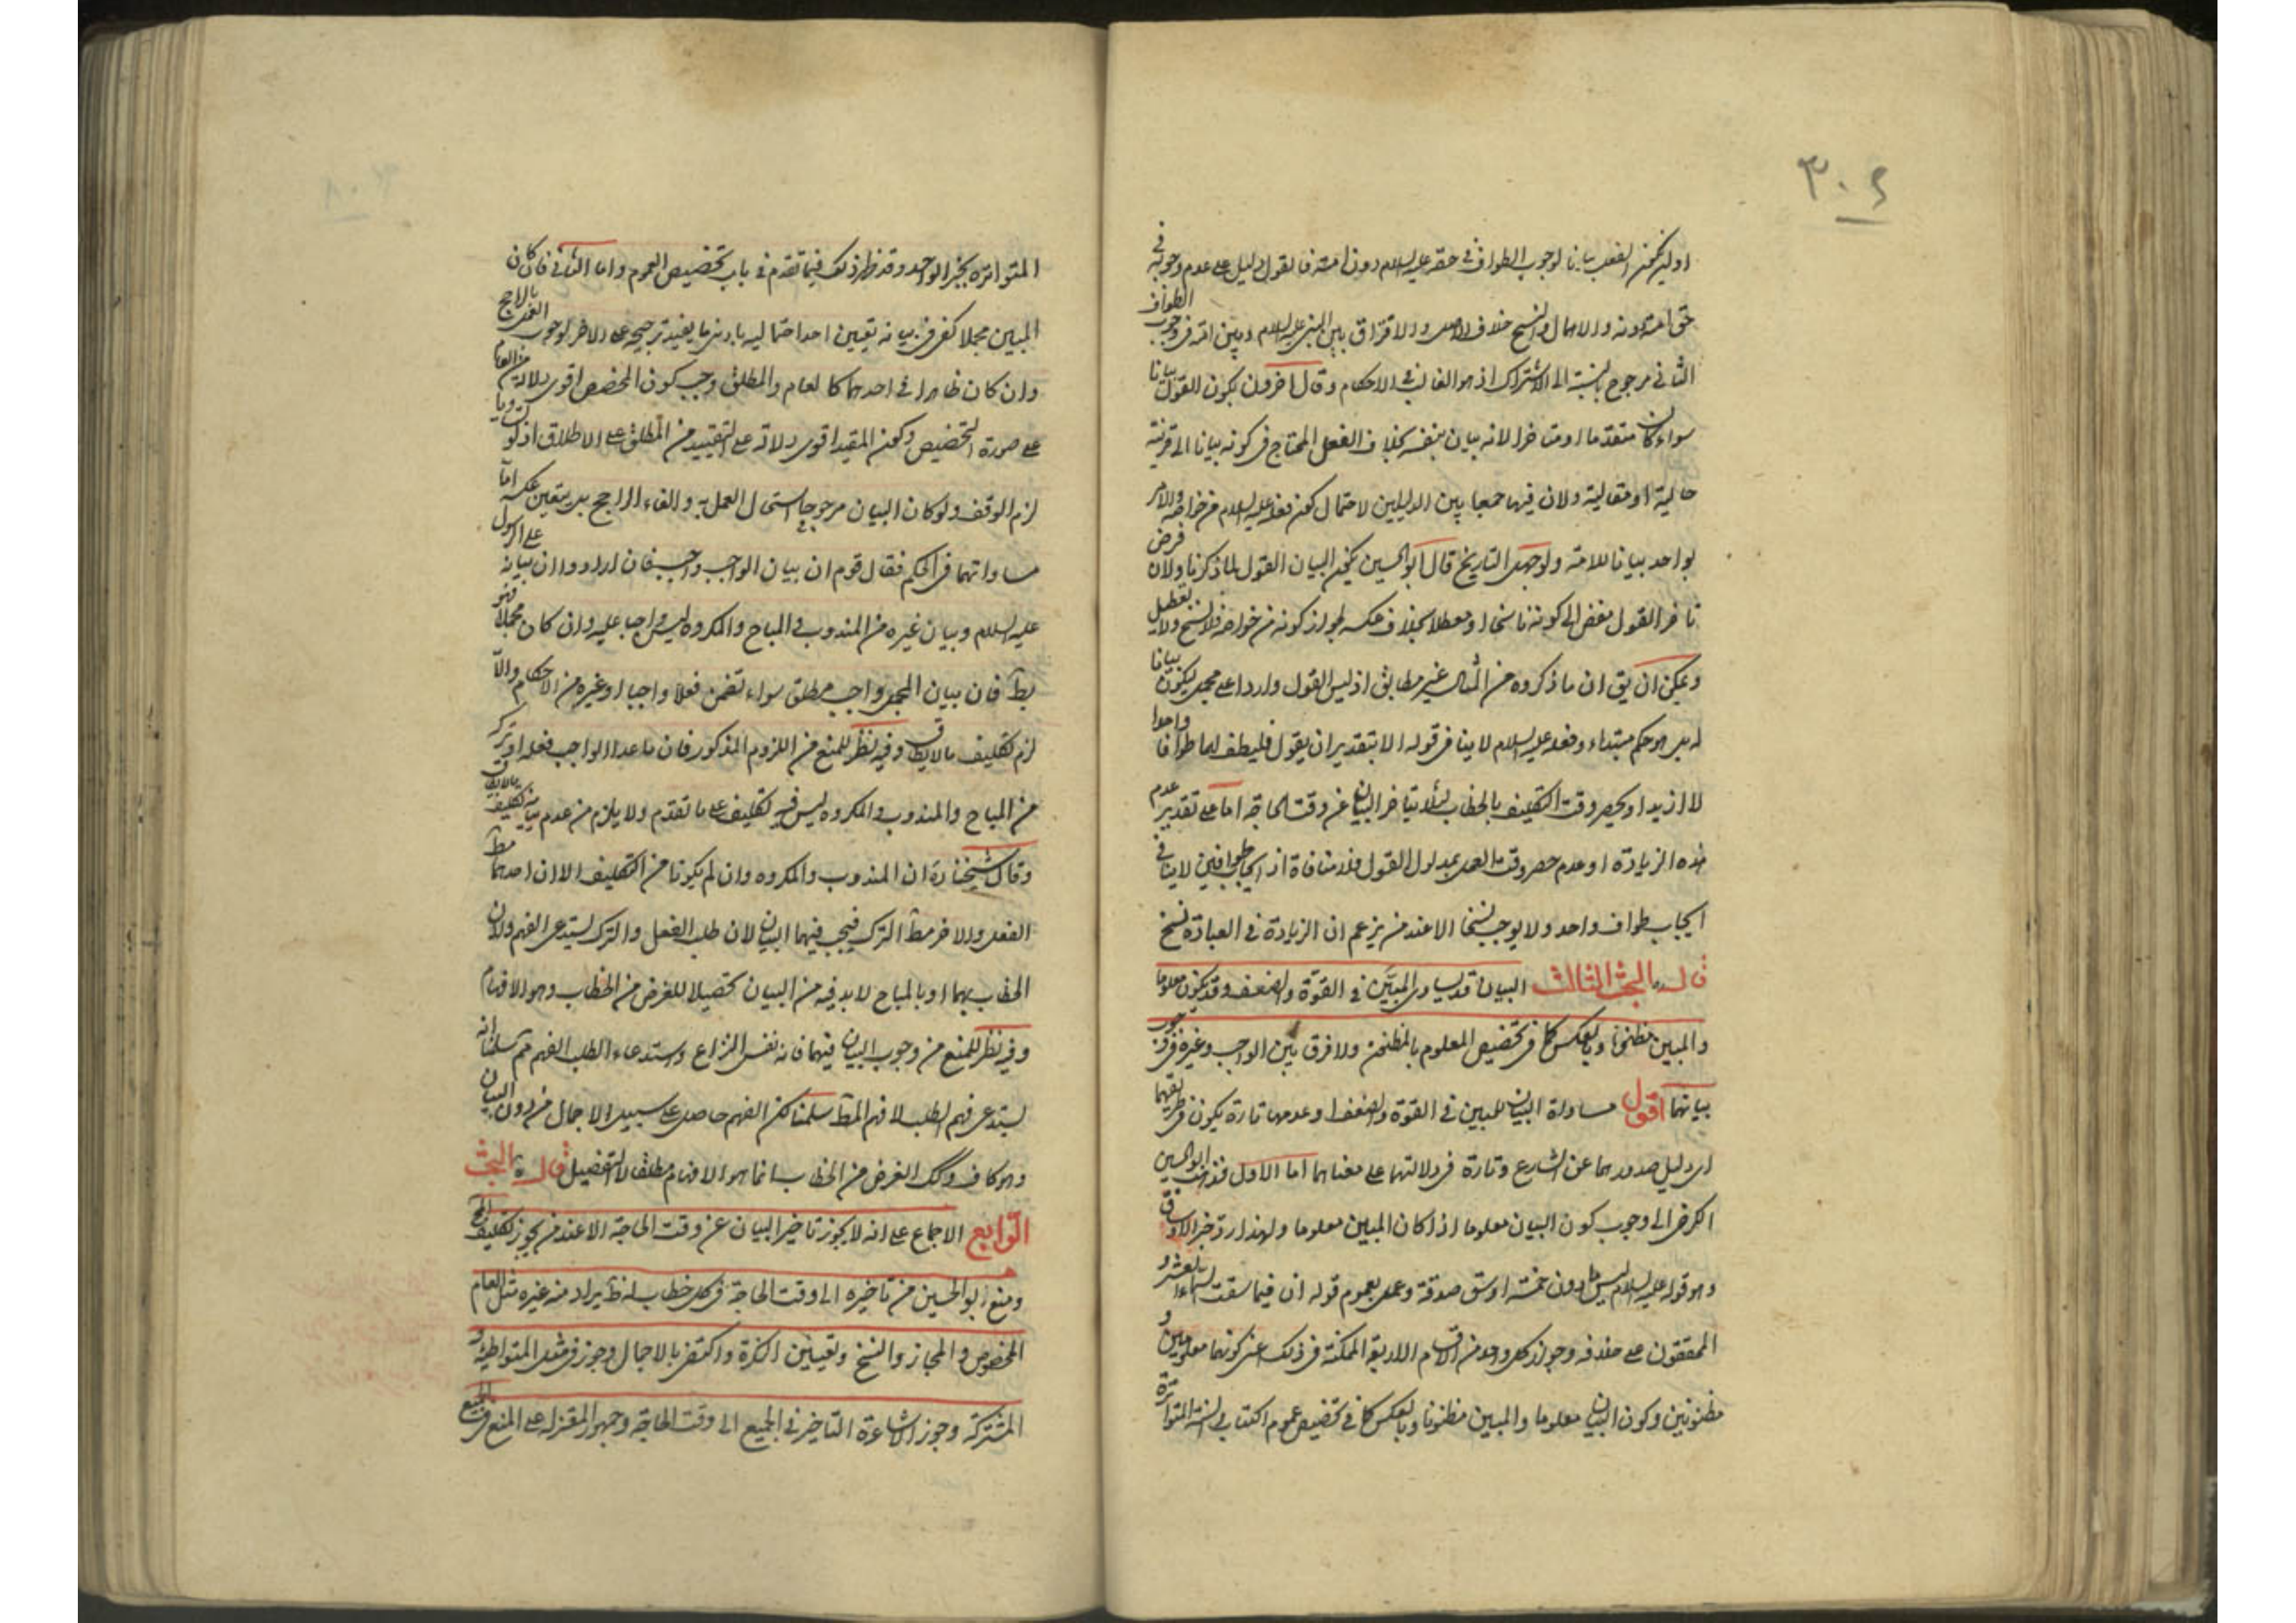 ٣٠٤
او ليكن الفعل بيانا لوجوب الطواف في حقه عليه السلام دون امته فالقول دليل على عدم وجوبه في
حق امته دونه والاهمال والنسخ خلاف الاصل والافتراق بين النبي عليه السلام وبين امته في وجوب الطواف
الثاني مرجوح بالنسبة الى الاشتراك اذ هو الغالب في الاحكام وقال اخرون يكون القول بيانا
سواء كان متقدما او متاخرا لانه بيان بنفسه بخلاف الفعل المحتاج في كونه بيانا الى قرينة
حالية او مقالية ولان فيها جمعا بين الدليلين لاحتمال كون فعله عليه السلام من خواصه والامر
بواحد بيانا للامة ولو جهل التاريخ قال ابو الحسين يكون البيان القول لما ذكرنا ولان فرض
تاخر القول مفض الى كونه ناسخا او معطلا بخلاف عكسه لجواز كونه من خواصه فلا نسخ ولا تعطيل
ويمكن ان يق ان ما ذكروه من المثال غير مطابق اذ ليس القول واردا على مجمل ليكون بيانا
له بل هو حكم مبتداء وفعله عليه السلام لا ينافي قوله الا بتقدير ان يقول فليطف لهما طوافا واحدا
لا ازيد او يحصر وقت التكليف بالخطاب لئلا يتاخر البيان عن وقت الحاجة اما على تقدير عدم
هذه الزيادة او عدم حصر وقت العمل بمدلول القول فلا منافاة اذ ايجاب طوافين لا ينافي
ايجاب طواف واحد ولا يوجب نسخا الا عند من يزعم ان الزيادة في العبادة نسخ
قال البحث الثالث البيان قد يساوى المبين في القوة والضعف وقد يكون معلوما
والمبين مظنونا وبالعكس كما في تخصيص المعلوم بالمظنون ولا فرق بين الواجب وغيره في وجوب
بيانهما اقول مساواة البيان للمبين في القوة والضعف وعدمها تارة يكون في طريقهما
اى دليل صدورهما عن الشارع وتارة في دلالتهما على معناهما اما الاول فذهب ابو الحسين
الكرخي الى وجوب كون البيان معلوما اذا كان المبين معلوما ولهذا رد خبر الاوساق
وهو قوله عليه السلام ليس فيما دون خمسة اوسق صدقة وعمل بعموم قوله ان فيما سقت السماء العشر و
المحققون على خلافه وجواز كل واحد من الاقسام الاربعة الممكنة في ذلك اعنى كونهما معلومين و
مظنونين وكون البيان معلوما والمبين مظنونا وبالعكس كما في تخصيص عموم الكتاب والسنة المتواترة
المتواترة بخبر الواحد وقد ظهر ذلك فيما تقدم في باب تخصيص العموم واما الثاني فان كان
المبين مجملا كفى في بيانه تعيين احد احتماليه بادنى ما يفيد ترجيحه على الاخر لوجوب العمل بالراجح
وان كان ظاهرا في احدهما كالعام والمطلق وجب كون المخصص اقوى دلالة من العام
على صورة التخصيص وكون المقيد اقوى دلالة على التقييد من المطلق على الاطلاق اذ لو تساويا
لزم الوقف ولو كان البيان مرجوحا استحال العمل به والغاء الراجح بل يتعين عكسه اما
مساواتهما في الحكم فقال قوم ان بيان الواجب واجب فان ارادوا ان بيانه على الرسول
عليه السلام وبيان غيره من المندوب والمباح والمكروه ليس واجبا عليه وان كان مجملا فهو
بط فان بيان المجمل واجب مطلق سواء تضمن فعلا واجبا او غيره من الاحكام والا
لزم تكليف ما لا يطاق وفيه نظر للمنع من اللزوم المذكور فان ما عدا الواجب فعله او تركه
من المباح والمندوب والمكروه ليس فيه تكليف على ما تقدم ولا يلزم من عدم بيانه تكليف ما لا يطاق
وقال شيخنا ان المندوب والمكروه وان لم يكونا من التكليف الا ان احدهما مط
الفعل والاخر مط الترك فيجب فيهما البيان لان طلب الفعل والترك يستدعى الفهم ولان
الخطاب بهما او بالمباح لا بد فيه من البيان تحصيلا للغرض من الخطاب وهو الافهام
وفيه نظر للمنع من وجوب البيان فيهما فانه نفس النزاع واستدعاء الطلب الفهم مم سلمنا انه
يستدعى فهم الطلب لا فهم المط سلمنا لكن الفهم حاصل على سبيل الاجمال من دون البيان
وهو كاف وكك الغرض من الخطاب انما هو الافهام مطلقا لا التفصيل قال البحث
الرابع الاجماع على انه لا يجوز تاخير البيان عن وقت الحاجة الا عند من يجوز تكليف المح
ومنع ابو الحسين من تاخيره الى وقت الحاجة في كل خطاب له ظ يراد منه غيره مثل العام
المخصوص والمجاز والنسخ وتعيين النكرة واكتفى بالاجمال وجوز في مثل المتواطئة و
المشتركة وجوز الاشاعرة التاخير في الجميع الى وقت الحاجة وجمهور المعتزلة على المنع في الجميع